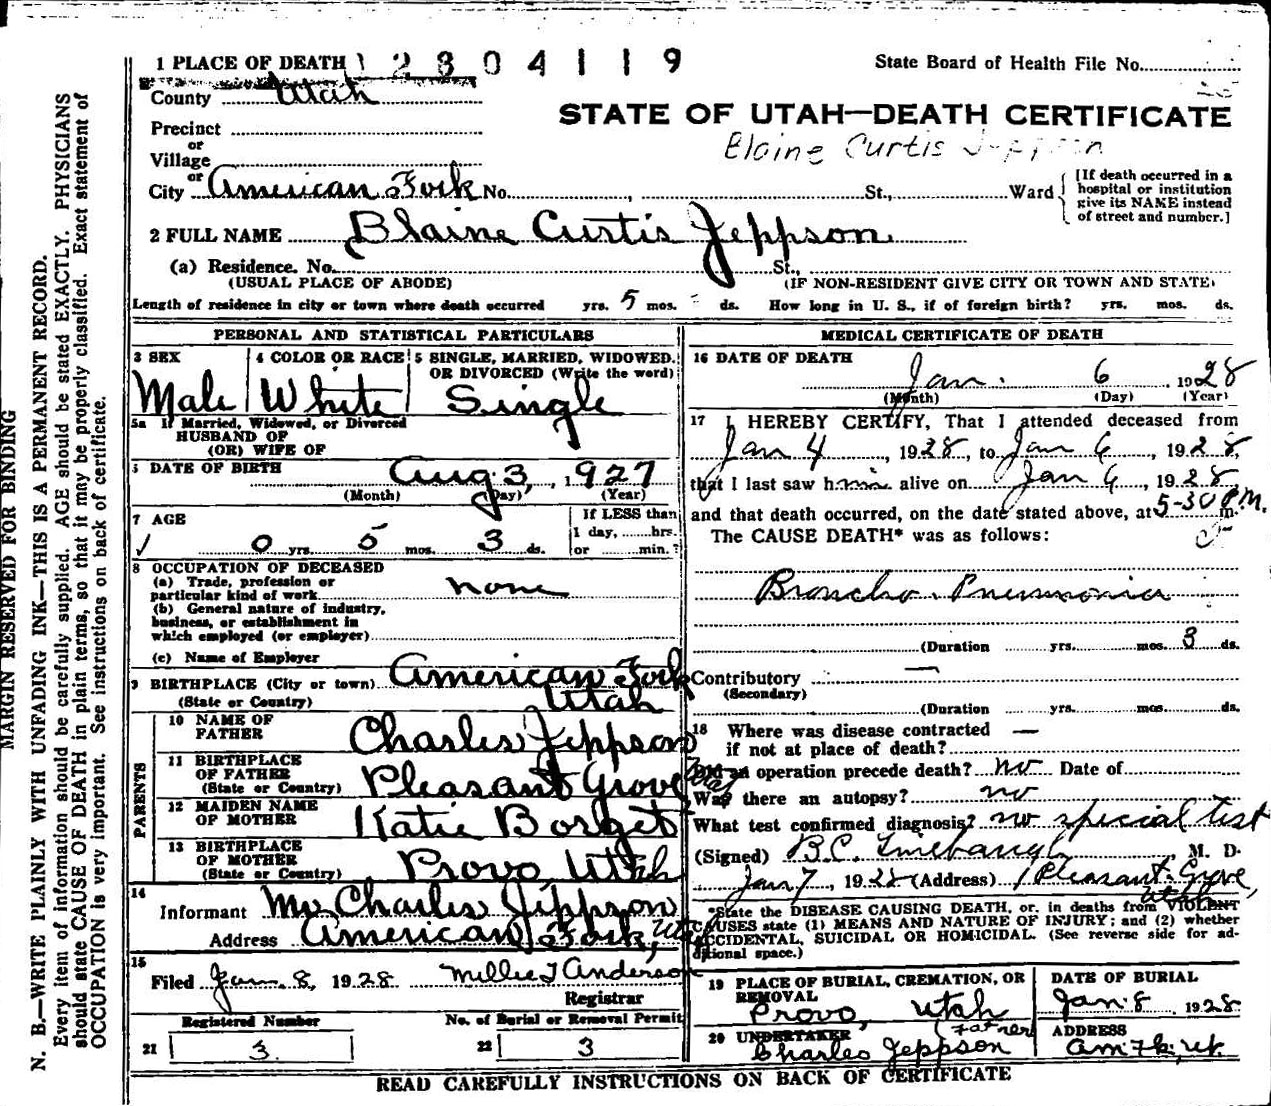 1 PLACE OF DEATH 12804119
State Board of Health File No.
County Utah
STATE OF UTAH—DEATH CERTIFICATE
Precinct
Elaine Curtis Jeppson
or
Village
or
City American Fork No. , St., Ward
[If death occurred in a
hospital or institution
give its NAME instead
of street and number.]
2 FULL NAME Blaine Curtis Jeppson
(a) Residence. No. St.,
(USUAL PLACE OF ABODE) (IF NON-RESIDENT GIVE CITY OR TOWN AND STATE.
Length of residence in city or town where death occurred yrs. 5 mos. ds. How long in U. S., if of foreign birth? yrs. mos. ds.
PERSONAL AND STATISTICAL PARTICULARS
3 SEX 4 COLOR OR RACE 5 SINGLE, MARRIED, WIDOWED.
OR DIVORCED (Write the word)
Male White Single
5a If Married, Widowed, or Divorced
HUSBAND OF
(OR) WIFE OF
DATE OF BIRTH Aug 3, , 1927
(Month) (Day) (Year)
7 AGE If LESS than
0 yrs. 5 mos. 3 ds. 1 day, hrs.
or min.?
8 OCCUPATION OF DECEASED
(a) Trade, profession or
particular kind of work none
(b) General nature of industry,
business, or establishment in
which employed (or employer)
(c) Name of Employer
9 BIRTHPLACE (City or town) American Fork
(State or Country) Utah
PARENTS
10 NAME OF
FATHER Charles Jeppson
11 BIRTHPLACE
OF FATHER
(State or Country) Pleasant Grove Utah
12 MAIDEN NAME
OF MOTHER Katie Borget
13 BIRTHPLACE
OF MOTHER
(State or Country) Provo Utah
14
Informant Mr Charles Jeppson
Address American Fork, Utah
15
Filed Jan. 8, 1928 Millie T Anderson
Registrar
Registered Number No. of Burial or Removal Permit
21 3 22 3
MEDICAL CERTIFICATE OF DEATH
16 DATE OF DEATH
Jan. 6 , 1928
(Month) (Day) (Year)
17 I HEREBY CERTIFY, That I attended deceased from
Jan 4 , 1928, to Jan 6 , 1928,
that I last saw him alive on Jan 6 , 1928,
and that death occurred, on the date stated above, at 5-30 P.M. m.
The CAUSE DEATH* was as follows:
Broncho-Pneumonia
(Duration yrs. mos. 3 ds.
Contributory —
(Secondary)
(Duration yrs. mos. ds.
18 Where was disease contracted —
if not at place of death?
Did an operation precede death? no Date of
Was there an autopsy? no
What test confirmed diagnosis? no special test
(Signed) B.C. Linebaugh M. D.
Jan 7, 1928 (Address) Pleasant Grove,
Utah
*State the DISEASE CAUSING DEATH, or, in deaths from VIOLENT
CAUSES state (1) MEANS AND NATURE OF INJURY; and (2) whether
ACCIDENTAL, SUICIDAL OR HOMICIDAL. (See reverse side for ad-
ditional space.)
19 PLACE OF BURIAL, CREMATION, OR
REMOVAL
Provo, Utah
DATE OF BURIAL
Jan. 8 1928
20 UNDERTAKER (Father)
Charles Jeppson
ADDRESS
Am. Fk., Ut.
READ CAREFULLY INSTRUCTIONS ON BACK OF CERTIFICATE
MARGIN RESERVED FOR BINDING
N. B.—WRITE PLAINLY WITH UNFADING INK—THIS IS A PERMANENT RECORD.
Every item of information should be carefully supplied. AGE should be stated EXACTLY. PHYSICIANS
should state CAUSE OF DEATH in plain terms, so that it may be properly classified. Exact statement of
OCCUPATION is very important. See instructions on back of certificate.